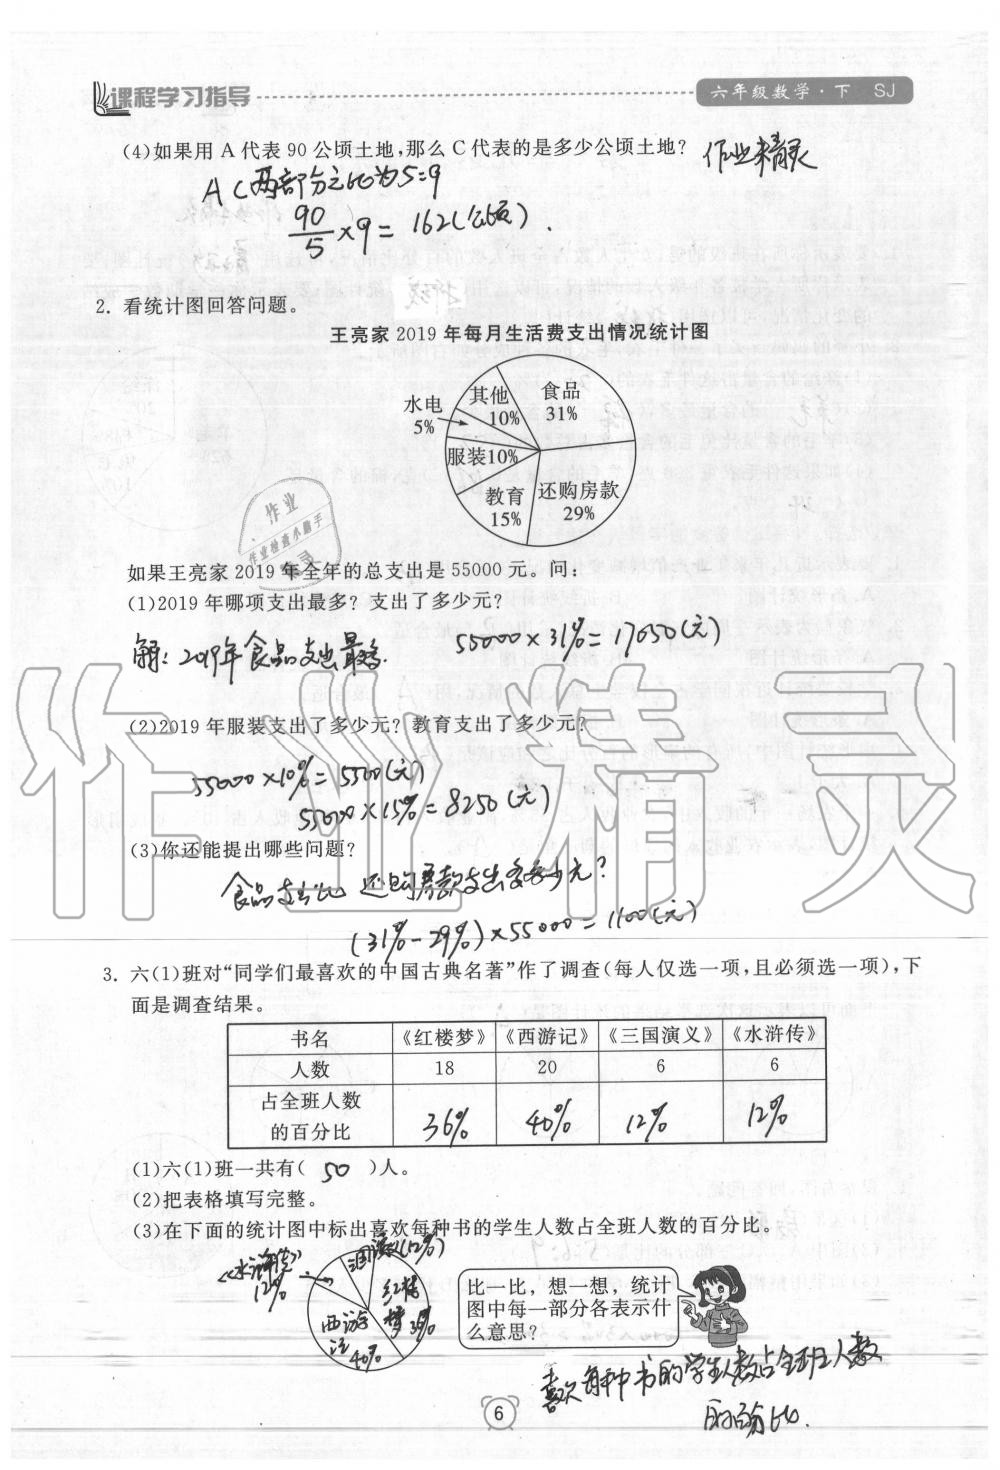 课程学习指导
六年级数学·下 SJ
(4)如果用 A 代表 90 公顷土地,那么 C 代表的是多少公顷土地?
作业精灵
A C两部分之比为5:9
90/5 ×9= 162(公顷).
2. 看统计图回答问题。
王亮家 2019 年每月生活费支出情况统计图
其他 10%
食品 31%
水电 5%
服装10%
教育 15%
还购房款 29%
作业
作业检查小助手
如果王亮家 2019 年全年的总支出是 55000 元。问:
(1)2019 年哪项支出最多? 支出了多少元?
解: 2019年食品支出最多.
55000×31%=17050(元)
(2)2019 年服装支出了多少元? 教育支出了多少元?
55000×10%=5500(元)
55000×15%=8250(元)
(3)你还能提出哪些问题?
食品支出比还购房款支出多多少元?
(31%-29%)×55000=1100(元)
作业精灵
3. 六(1)班对“同学们最喜欢的中国古典名著”作了调查(每人仅选一项,且必须选一项),下
面是调查结果。
书名 《红楼梦》 《西游记》 《三国演义》 《水浒传》
人数 18 20 6 6
占全班人数
的百分比 36% 40% 12% 12%
(1)六(1)班一共有( 50 )人。
(2)把表格填写完整。
(3)在下面的统计图中标出喜欢每种书的学生人数占全班人数的百分比。
《水浒传》
12%
三国演义(12%)
红楼
梦36%
西游
记
40%
比一比，想一想，统计
图中每一部分各表示什
么意思?
喜欢每种书的学生人数占全班人数
的百分比.
6